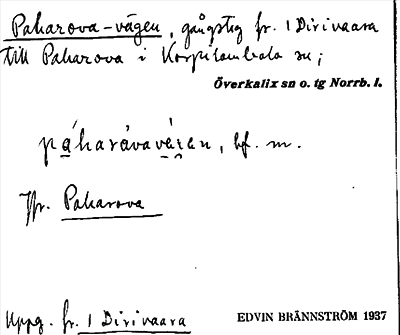 Paharova-vägen, gångstig fr. 1 Dirivaara
till Paharova i Korpilombolo sn;
Överkalix sn o. tg Norrb. l.
páharåvavä́gen, bf. m.
Jfr. Paharova
Uppg. fr. 1 Dirivaara
EDVIN BRÄNNSTRÖM 1937